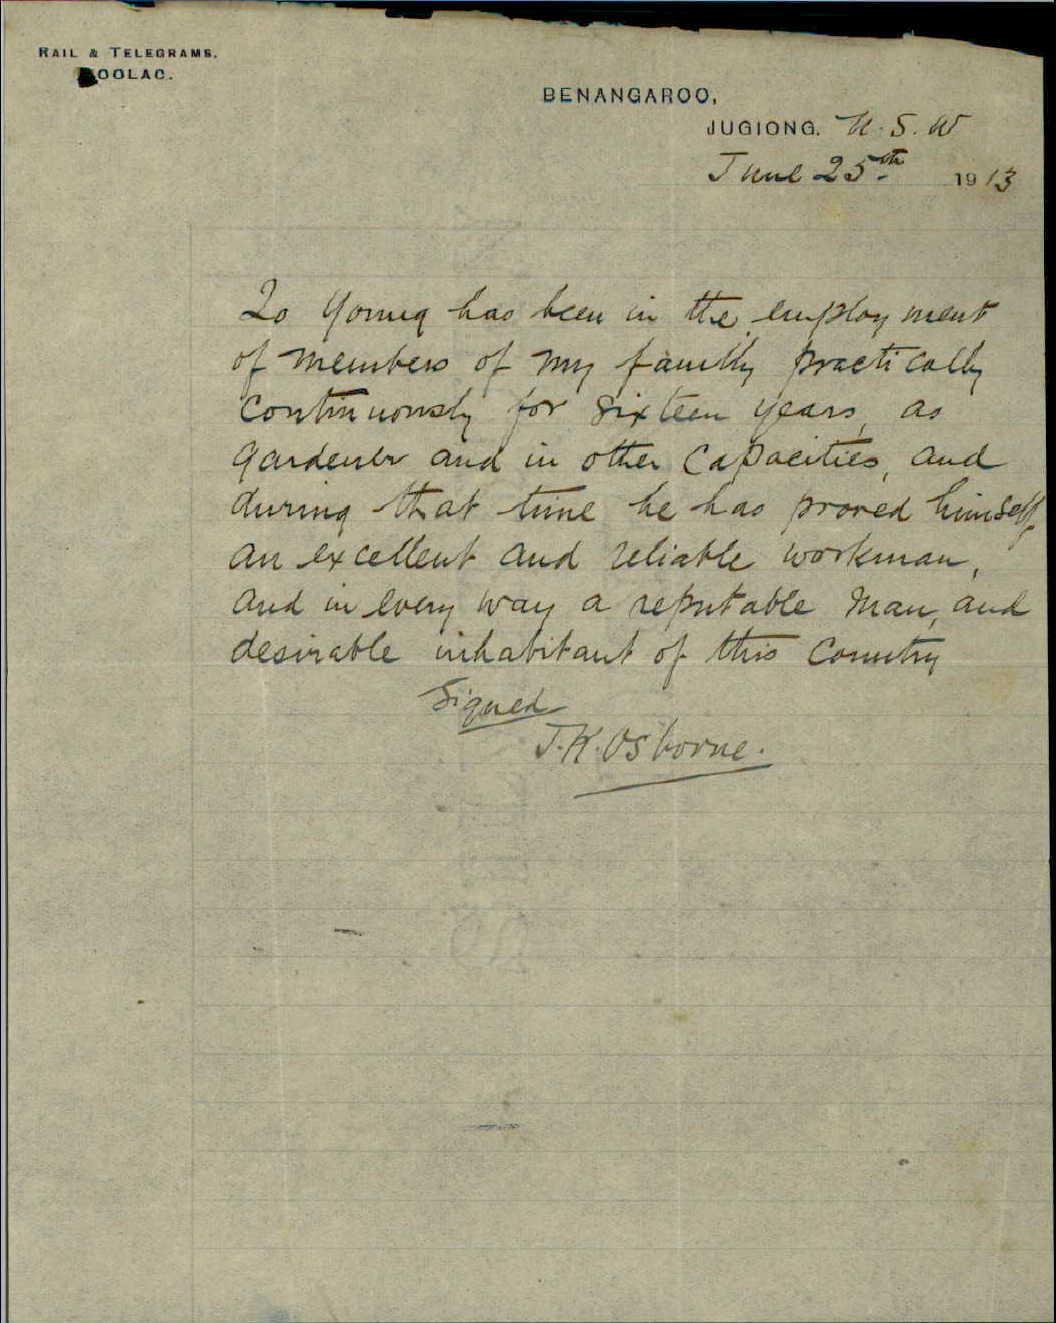 RAIL & TELEGRAMS.
OOLAC.
BENANGAROO,
JUGIONG. N. S. W
June 25th 1913
Lo Young has been in the employment
of members of my family practically
continuously for sixteen years, as
gardener and in other capacities, and
during that time he has proved himself
an excellent and reliable workman,
and in every way a reputable man, and
desirable inhabitant of this country
Signed
J. K. Osborne.